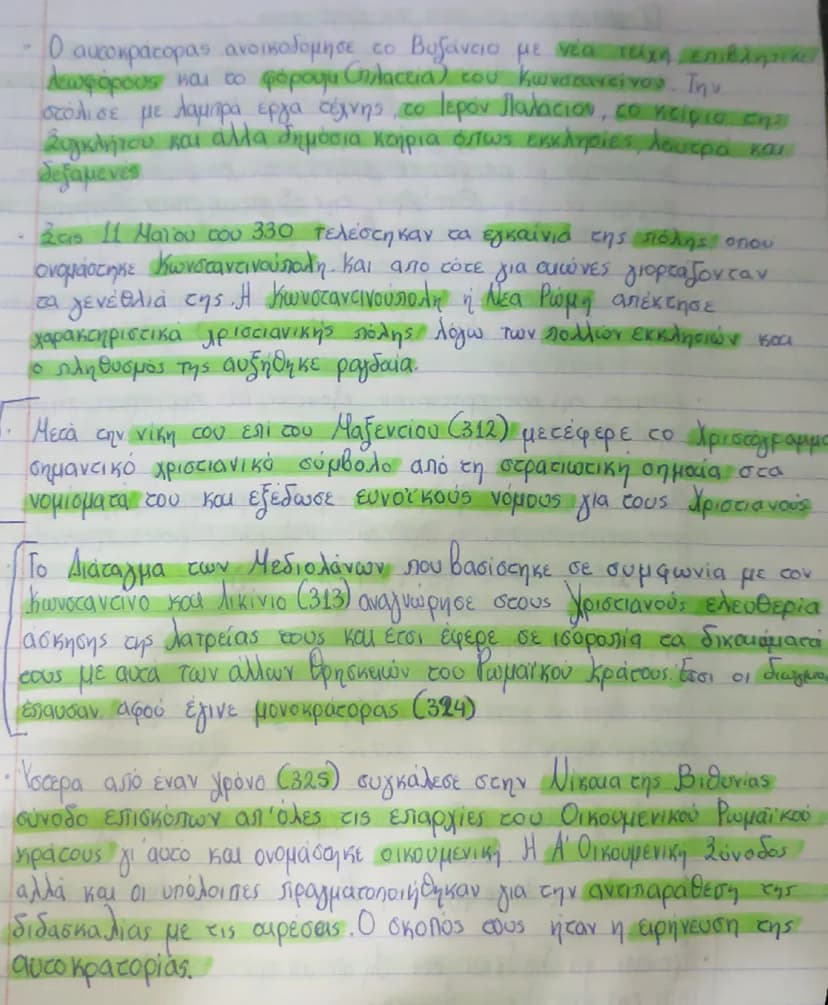 · Ο αυτοκράτορας ανοικοδόμησε το Βυζάντιο με νέα τείχη επιβλητικές
λεωφόρους και το φόρουμ (πλατεία) του Κωνσταντίνου. Την
στόλισε με λαμπρά έργα τέχνης, το Ιερόν Παλάτιον, το κτίριο της
Συγκλήτου και άλλα δημόσια κτήρια όπως εκκλησίες, λουτρά και
δεξαμενές
· Στις 11 Μαΐου του 330 τελέστηκαν τα εγκαίνια της πόλης οπου
ονομάστηκε Κωνσταντινούπολη. Και απο τότε για αιώνες γιορτάζονταν
τα γενέθλιά της. Η Κωνσταντινούπολη ή Νέα Ρώμη απέκτησε
χαρακτηριστικά χριστιανικής πόλης λόγω των πολλών εκκλησιών και
ο πληθυσμός της αυξήθηκε ραγδαία.
· Μετά την νίκη του επί του Μαξεντίου (312) μετέφερε το Χριστόγραμμα
σημαντικό χριστιανικό σύμβολο από τη στρατιωτική σημαία στα
νομίσματά του και εξέδωσε ευνοϊκούς νόμους για τους Χριστιανούς
· Το Διάταγμα των Μεδιολάνων που βασίστηκε σε συμφωνία με τον
Κωνσταντίνο και Λικίνιο (313) αναγνώρησε στους Χριστιανούς ελευθερία
άσκησης της λατρείας τους και έτσι έφερε σε ισοροπία τα δικαιώματά
τους με αυτά των άλλων θρησκειών του Ρωμαϊκού Κράτους. Έτσι οι διωγμοί
έπαυσαν αφού έγινε μονοκράτορας (324)
· Ύστερα από έναν χρόνο (325) συγκάλεσε στην Νίκαια της Βιθυνίας
σύνοδο επισκόπων απ' όλες τις επαρχίες του Οικουμενικού Ρωμαϊκού
κράτους γι'αυτό και ονομάσθηκε οικουμενική. Η Α' Οικουμενική Σύνοδος
αλλά και οι υπόλοιπες πραγματοποιήθηκαν για την αντιπαράθεση της
διδασκαλίας με τις αιρέσεις. Ο σκοπός τους ήταν η ειρήνευση της
αυτοκρατορίας.